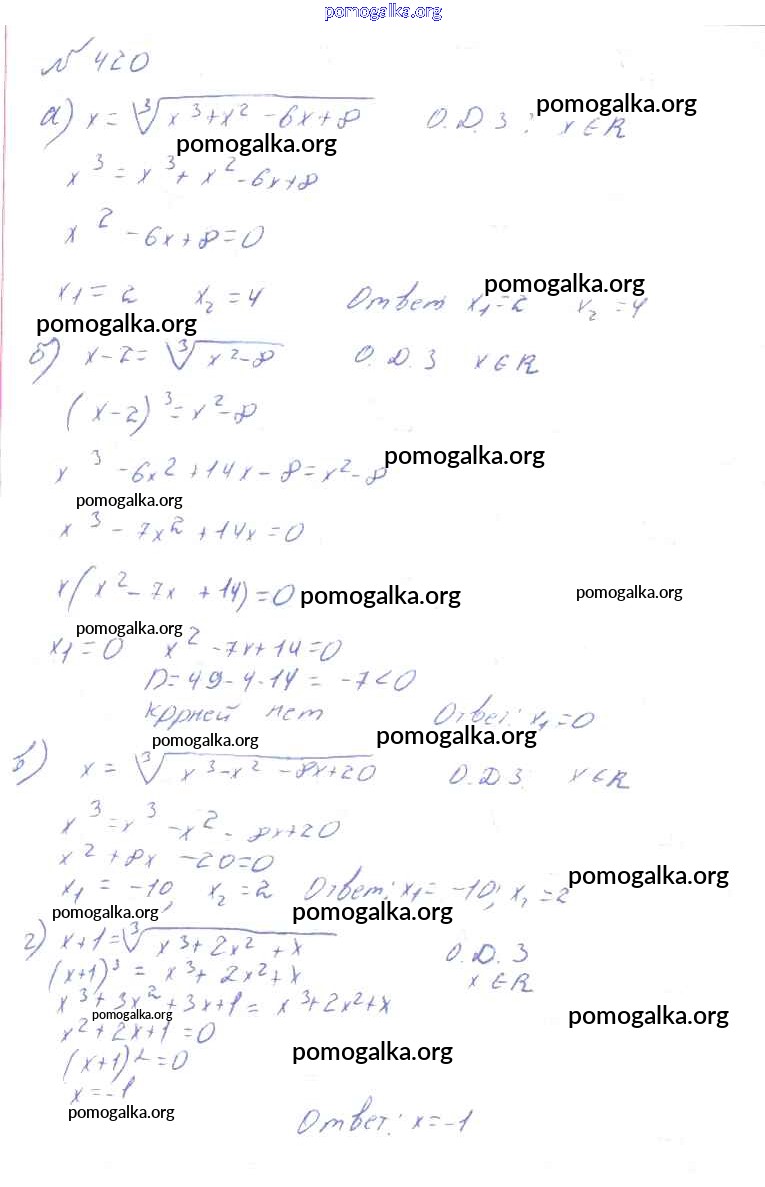 pomogalka.org
№ 420
а) x = ∛(x³+x²-6x+8) О.Д.З: x∈R pomogalka.org
pomogalka.org
x³ = x³+x²-6x+8
x² -6x+8=0
x₁ = 2 x₂ = 4 Ответ x₁=2 x₂=4 pomogalka.org
pomogalka.org
б) x-2= ∛(x²-8) О.Д.З x∈R
(x-2)³=x²-8
x³ -6x²+14x-8=x²-8 pomogalka.org
pomogalka.org
x³ - 7x² +14x=0
x(x²-7x +14)=0 pomogalka.org pomogalka.org
pomogalka.org
x₁=0 x²-7x+14=0
D=49-4·14= -7<0
корней нет Ответ: x₁=0
pomogalka.org pomogalka.org
в) x = ∛(x³-x²-8x+20) О.Д.З. x∈R
x³=x³-x²-8x+20
x²+8x -20=0
x₁ = -10, x₂ = 2 Ответ: x₁= -10; x₂=2 pomogalka.org
pomogalka.org pomogalka.org
г) x+1=∛(x³+2x²+x) О.Д.З
(x+1)³ = x³+2x²+x x∈R
x³+3x²+3x+1= x³+2x²+x
pomogalka.org pomogalka.org
x²+2x+1=0
(x+1)²=0 pomogalka.org
x=-1
pomogalka.org
Ответ: x=-1